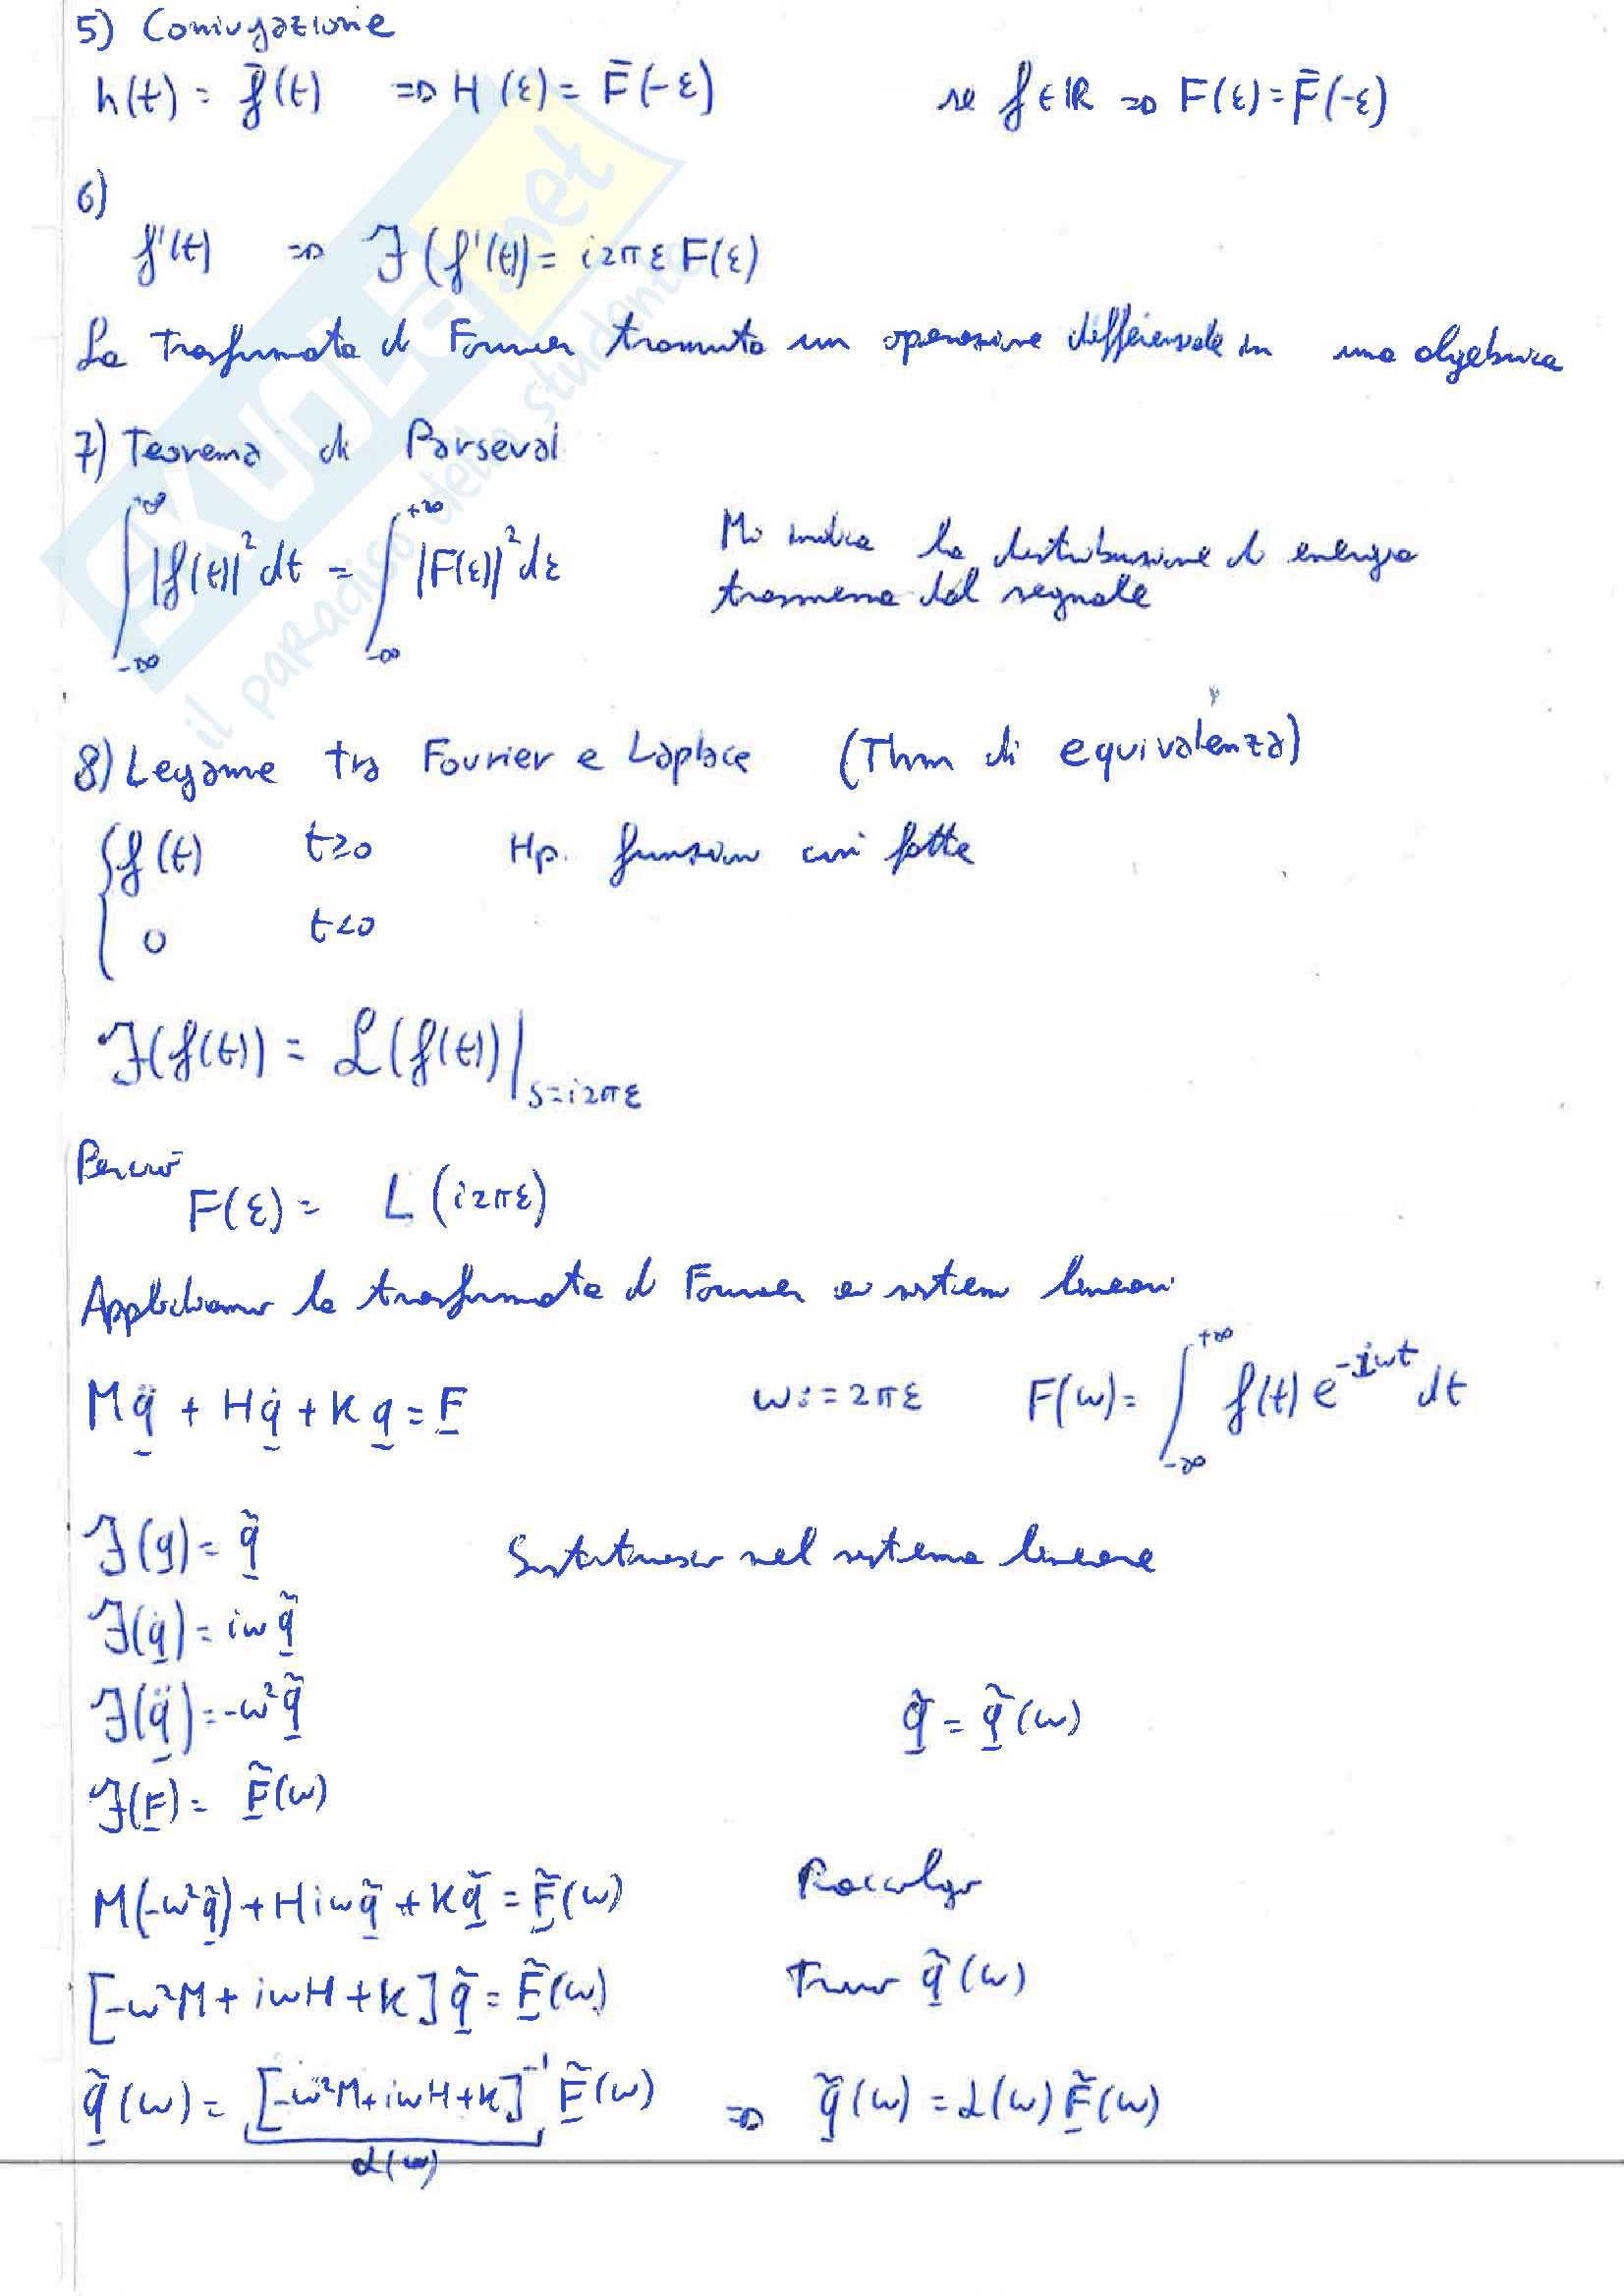 5) Coniugazione
h(t) = f̄(t) ⇒ H(ε) = F̄(-ε) se f∈ℝ ⇒ F(ε) = F̄(-ε)
6)
f'(t) ⇒ ℱ(f'(t)) = i2πε F(ε)
La Trasformata di Fourier tramuta un operazione differenziale in una algebrica
7) Teorema di Parseval
∫_{-∞}^{+∞} |f(t)|² dt = ∫_{-∞}^{+∞} |F(ε)|² dε Mi indica la distribuzione di energia
trasmessa dal segnale
8) Legame tra Fourier e Laplace (Thm di equivalenza)
{ f(t) t≥0 Hp. funzioni così fatte
{ 0 t<0
ℱ(f(t)) = ℒ(f(t))|_{s=i2πε}
Perciò
F(ε) = L(i2πε)
Applichiamo la trasformata di Fourier ai sistemi lineari
Mq̈ + Hq̇ + Kq = F ω := 2πε F(ω) = ∫_{-∞}^{+∞} f(t) e^{-iωt} dt
ℱ(q) = q̃ Sostituisco nel sistema lineare
ℱ(q̇) = iω q̃
ℱ(q̈) = -ω² q̃ q̃ = q̃(ω)
ℱ(F) = F̃(ω)
M(-ω²q̃) + Hiωq̃ + Kq̃ = F̃(ω) Raccolgo
[-ω²M + iωH + K] q̃ = F̃(ω) Trovo q̃(ω)
q̃(ω) = [-ω²M + iωH + K]⁻¹ F̃(ω) ⇒ q̃(ω) = α(ω) F̃(ω)
α(ω)
SKUOLA.net
il paradiso dello studente